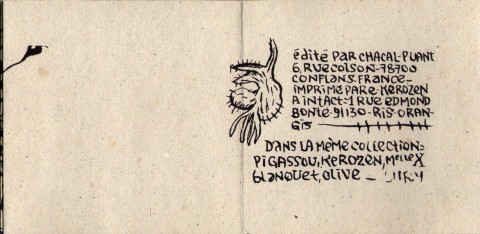 édité PAR CHACAL-PUANT
6, RUE COLSON-78700
CONFLANS. FRANCE-
IMPRIMÉ PAR E-KEROZEN
A INTACT=1 RUE EDMOND
BONTE-91130-RIS-ORAN-
GIS
DANS LA MÊME COLLECTION=
PIGASSOU, KEROZEN, MelleX
blANQUET, OLIVE _